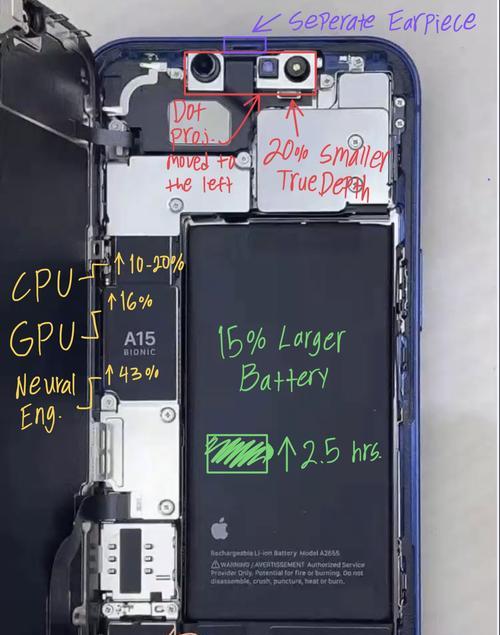 Seperate Earpiece
Dot
proj.
moved to
the left
20% Smaller
TrueDepth
CPU ↑ 10-20%
GPU ↑ 16%
Neural
Eng. ↑ 43%
A15
BIONIC
15% Larger
Battery
↑ 2.5 hrs.
Rechargeable Li-ion Battery Model A2655
WARNING / AVERTISSEMENT Authorized Service
Provider Only. Potential for fire or burning. Do not
disassemble, crush, puncture, heat or burn.